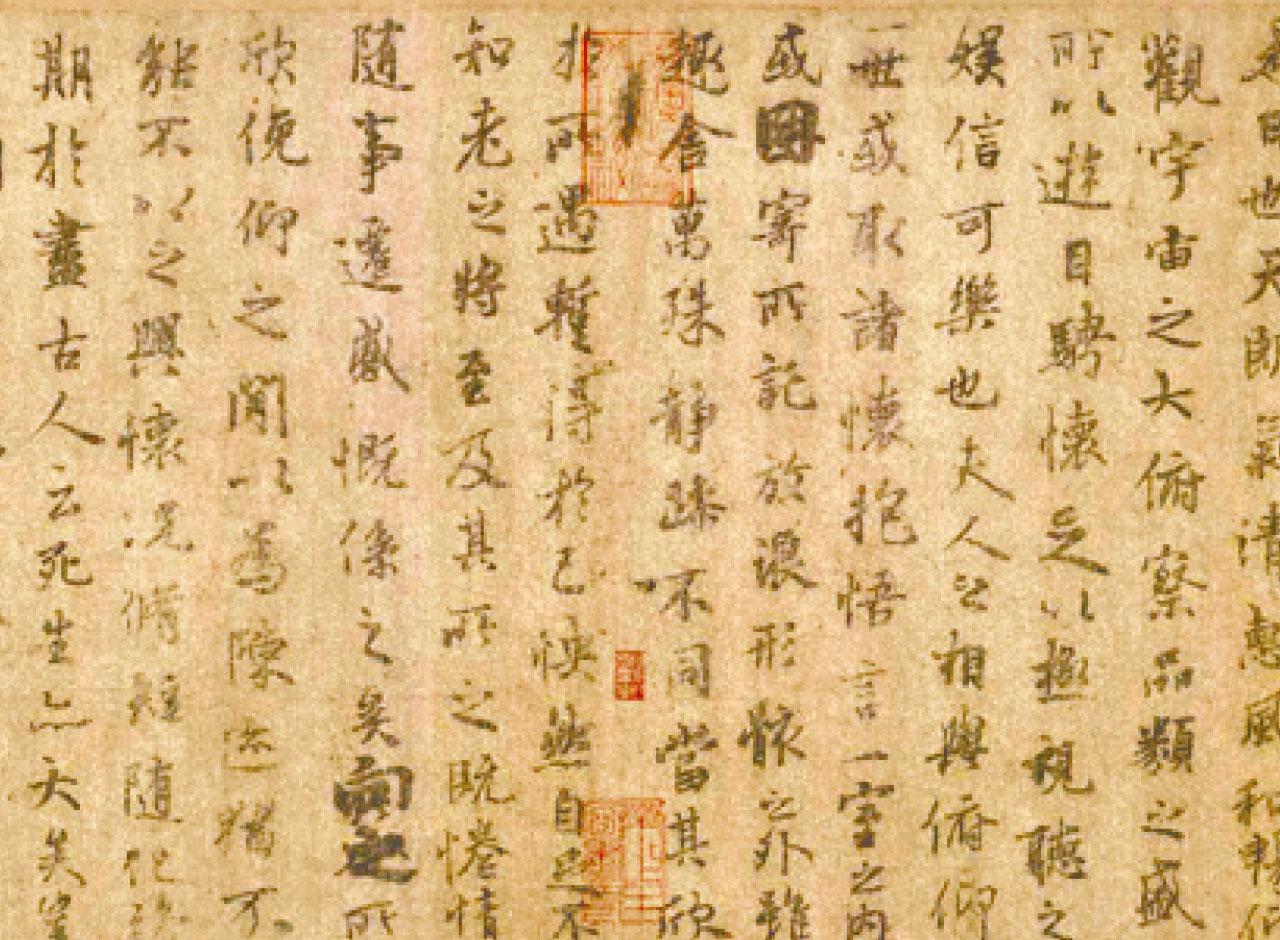 是日也天朗氣清惠風和暢仰
觀宇宙之大俯察品類之盛
所以遊目騁懷足以極視聽之
娛信可樂也夫人之相與俯仰
一世或取諸懷抱悟言一室之內
或因寄所託放浪形骸之外雖
趣舍萬殊静躁不同當其欣
於所遇蹔得於己怏然自足不
知老之將至及其所之既惓情
隨事遷感慨係之矣向之所
欣俛仰之閒以為陳迹猶不
能不以之興懷況脩短隨化終
期於盡古人云死生亦大矣豈